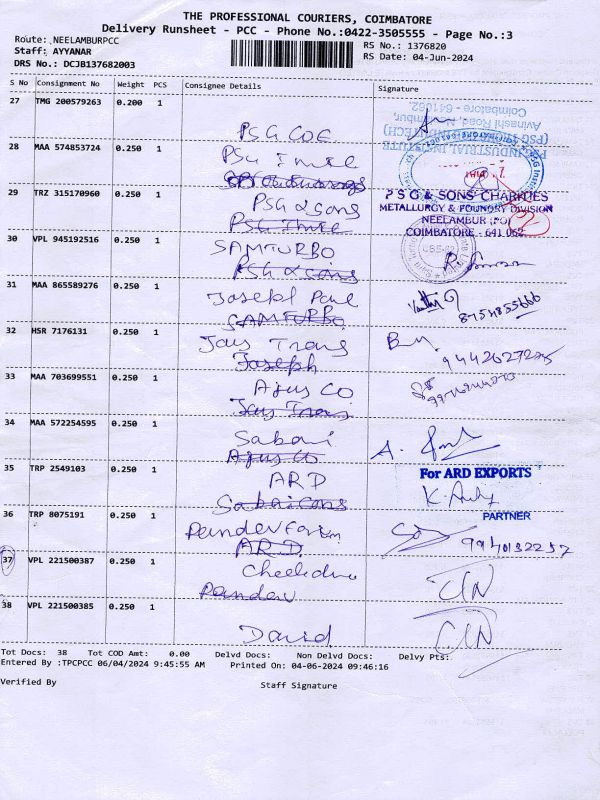 THE PROFESSIONAL COURIERS, COIMBATORE
Delivery Runsheet - PCC - Phone No.:0422-3505555 - Page No.:3
Route: NEELAMBURPCC
RS No.: 1376820
Staff: AYYANAR
RS Date: 04-Jun-2024
DRS No.: DCJB137682003
S No Consignment No Weight PCS Consignee Details Signature
27 TMG 200579263 0.200 1
PSG COE
PSG INDUSTRIAL INSTITUTE
(PSG FOUNDRY TECH)
Avinashi Road, Neelambur,
Coimbatore - 641062.
28 MAA 574853724 0.250 1
PSG
29 TRZ 315170960 0.250 1
PSG & Sons
P S G & SONS' CHARITIES
METALLURGY & FOUNDRY DIVISION
NEELAMBUR (PO)
COIMBATORE - 641 062
30 VPL 945192516 0.250 1
SAMTURBO
PSG & Sons
31 MAA 865589276 0.250 1
Joseph Paul
SAMTURBO
8754855666
32 HSR 7176131 0.250 1
Jays Trans
Joseph
33 MAA 703699551 0.250 1
Ajus CO
Jays Trans
34 MAA 572254595 0.250 1
Sabari
Ajus Co
35 TRP 2549103 0.250 1
ARD
For ARD EXPORTS
PARTNER
36 TRP 8075191 0.250 1
ARD
9940132257
37 VPL 221500387 0.250 1
CIN
38 VPL 221500385 0.250 1
David
CIN
Tot Docs: 38 Tot COD Amt: 0.00 Delvd Docs: Non Delvd Docs: Delvy Pts:
Entered By :TPCPCC 06/04/2024 9:45:55 AM Printed On: 04-06-2024 09:46:16
Verified By Staff Signature